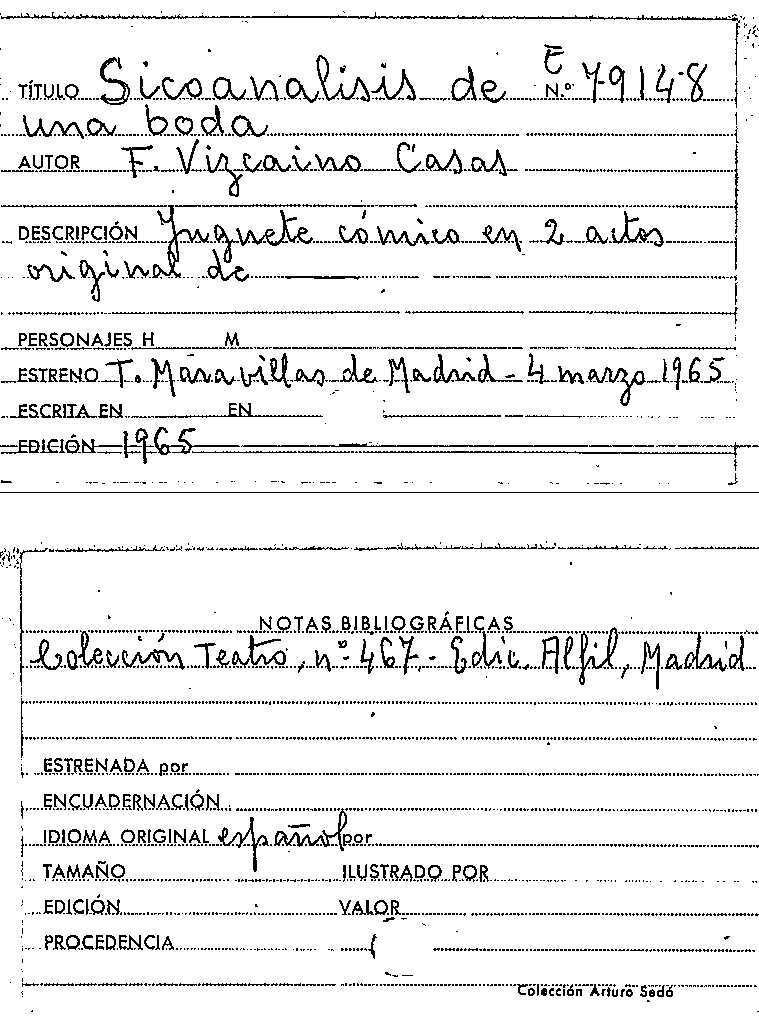 TÍTULO Sicoanalisis de E N.º 79148
una boda
AUTOR F. Vizcaino Casas
DESCRIPCIÓN Juguete cómico en 2 actos
original de ———
PERSONAJES H M
ESTRENO T. Maravillas de Madrid - 4 marzo 1965
ESCRITA EN EN
EDICIÓN 1965
NOTAS BIBLIOGRÁFICAS
Colección Teatro, nº 467 - Edic. Alfil, Madrid
ESTRENADA por
ENCUADERNACIÓN
IDIOMA ORIGINAL español por
TAMAÑO ILUSTRADO POR
EDICIÓN VALOR
PROCEDENCIA
Colección Arturo Sedó